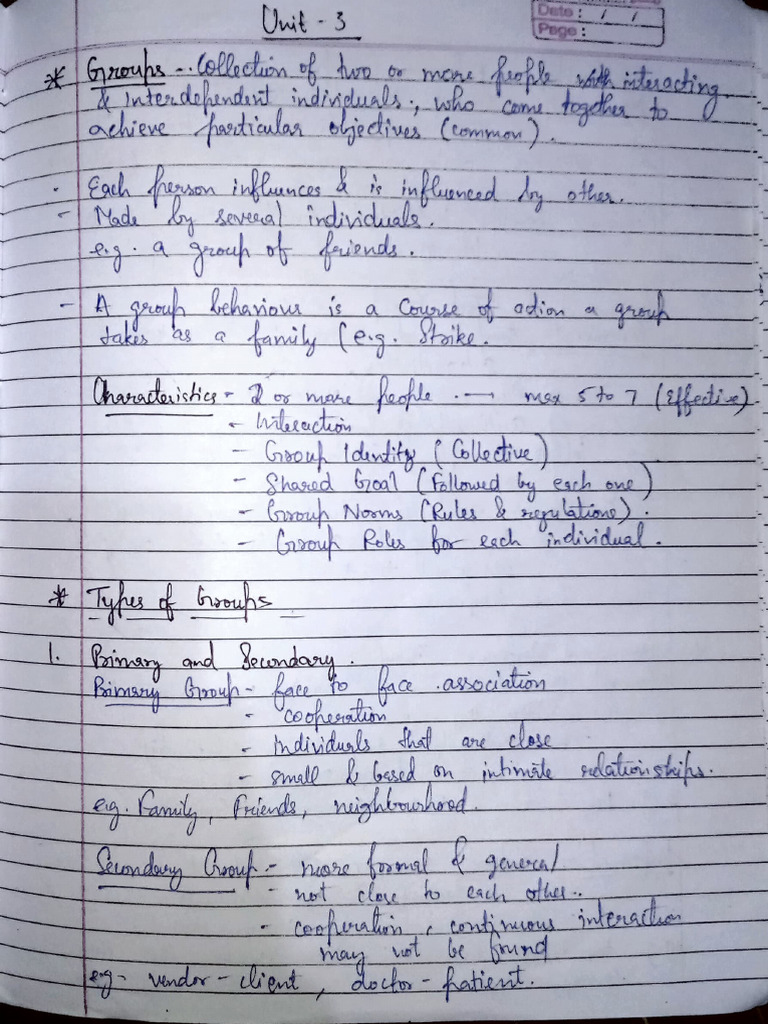 Unit - 3
Date : / /
Page :
* Groups - Collection of two or more people with interacting
& interdependent individuals, who come together to
achieve particular objectives (common).
. Each person influences & is influenced by other.
- Made by several individuals.
e.g. a group of friends.
- A group behaviour is a course of action a group
takes as a family (e.g. Strike.
Characteristics - 2 or more people . → max 5 to 7 (Effective)
- Interaction
- Group Identity (Collective)
- Shared Goal (Followed by each one)
- Group Norms (Rules & regulations).
- Group Roles for each individual.
* Types of Groups
1. Primary and Secondary.
Primary Group - face to face association
- cooperation
- individuals that are close
- small & based on intimate relationships.
e.g. Family, Friends, neighbourhood.
Secondary Group - more formal & general
- not close to each other.
- cooperation, continuous interaction
may not be found
e.g - vendor - client, doctor - patient.